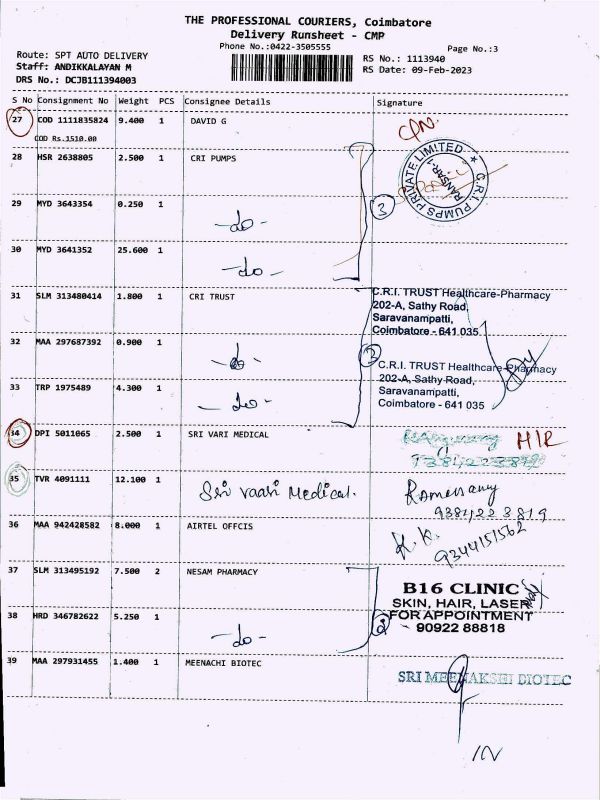 THE PROFESSIONAL COURIERS, Coimbatore
Delivery Runsheet - CMP
Phone No.:0422-3505555
Page No.:3
Route: SPT AUTO DELIVERY
RS No.: 1113940
Staff: ANDIKKALAYAN M
RS Date: 09-Feb-2023
DRS No.: DCJB111394003
S No Consignment No Weight PCS Consignee Details Signature
27 COD 1111835824 9.400 1 DAVID G
COD Rs.1510.00
28 HSR 2638805 2.500 1 CRI PUMPS
C.R.I. PUMPS PRIVATE LIMITED
29 MYD 3643354 0.250 1 -do- 3
30 MYD 3641352 25.600 1 -do-
31 SLM 313480414 1.800 1 CRI TRUST
C.R.I. TRUST Healthcare-Pharmacy
202-A, Sathy Road,
Saravanampatti,
Coimbatore - 641 035
32 MAA 297687392 0.900 1 -do- 3
C.R.I. TRUST Healthcare-Pharmacy
202-A, Sathy Road,
Saravanampatti,
Coimbatore - 641 035
33 TRP 1975489 4.300 1 -do-
34 DPI 5011065 2.500 1 SRI VARI MEDICAL
35 TVR 4091111 12.100 1 Sri Vaari Medical.
36 MAA 942428582 8.000 1 AIRTEL OFFCIS K.K.
9344151562
37 SLM 313495192 7.500 2 NESAM PHARMACY
B16 CLINIC
SKIN, HAIR, LASER
FOR APPOINTMENT
90922 88818
38 HRD 346782622 5.250 1 -do- 2
39 MAA 297931455 1.400 1 MEENACHI BIOTEC
SRI MEENAKSHI BIOTEC